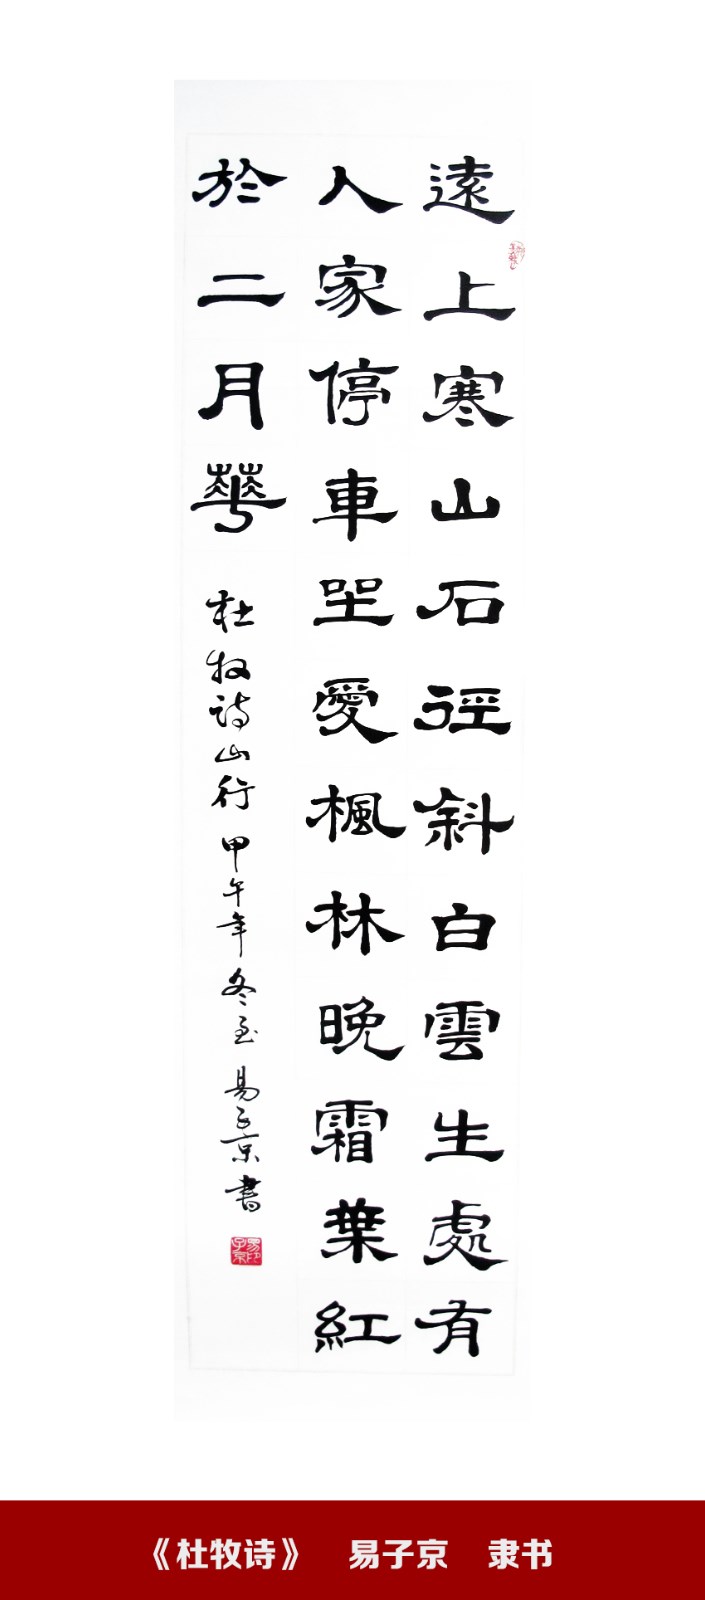 遠上寒山石徑斜白雲生處有
人家停車坐愛楓林晚霜葉紅
於二月華
杜牧诗山行 甲午年冬至 易子京書
易印子京
《杜牧诗》 易子京 隶书